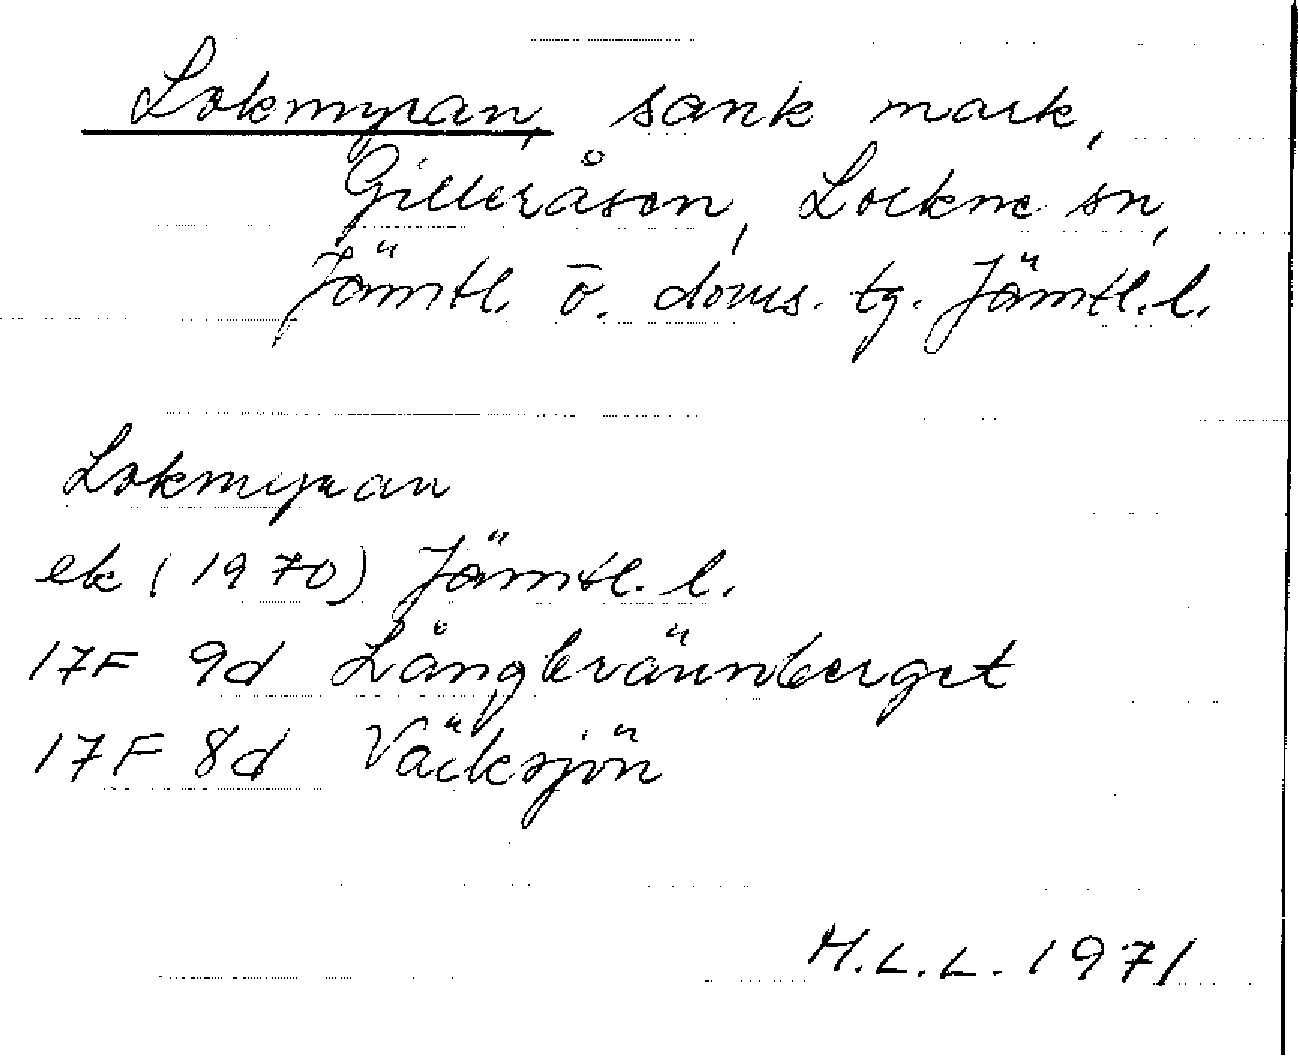 Lokmyran, sank mark,
Gilleråsen, Lockne sn,
Jämtl. ö. doms. tg. Jämtl. l.
Lokmyran
ek (1970) Jämtl. l.
17F 9d Långbrännberget
17F 8d Väcksjön
M.L.L. 1971